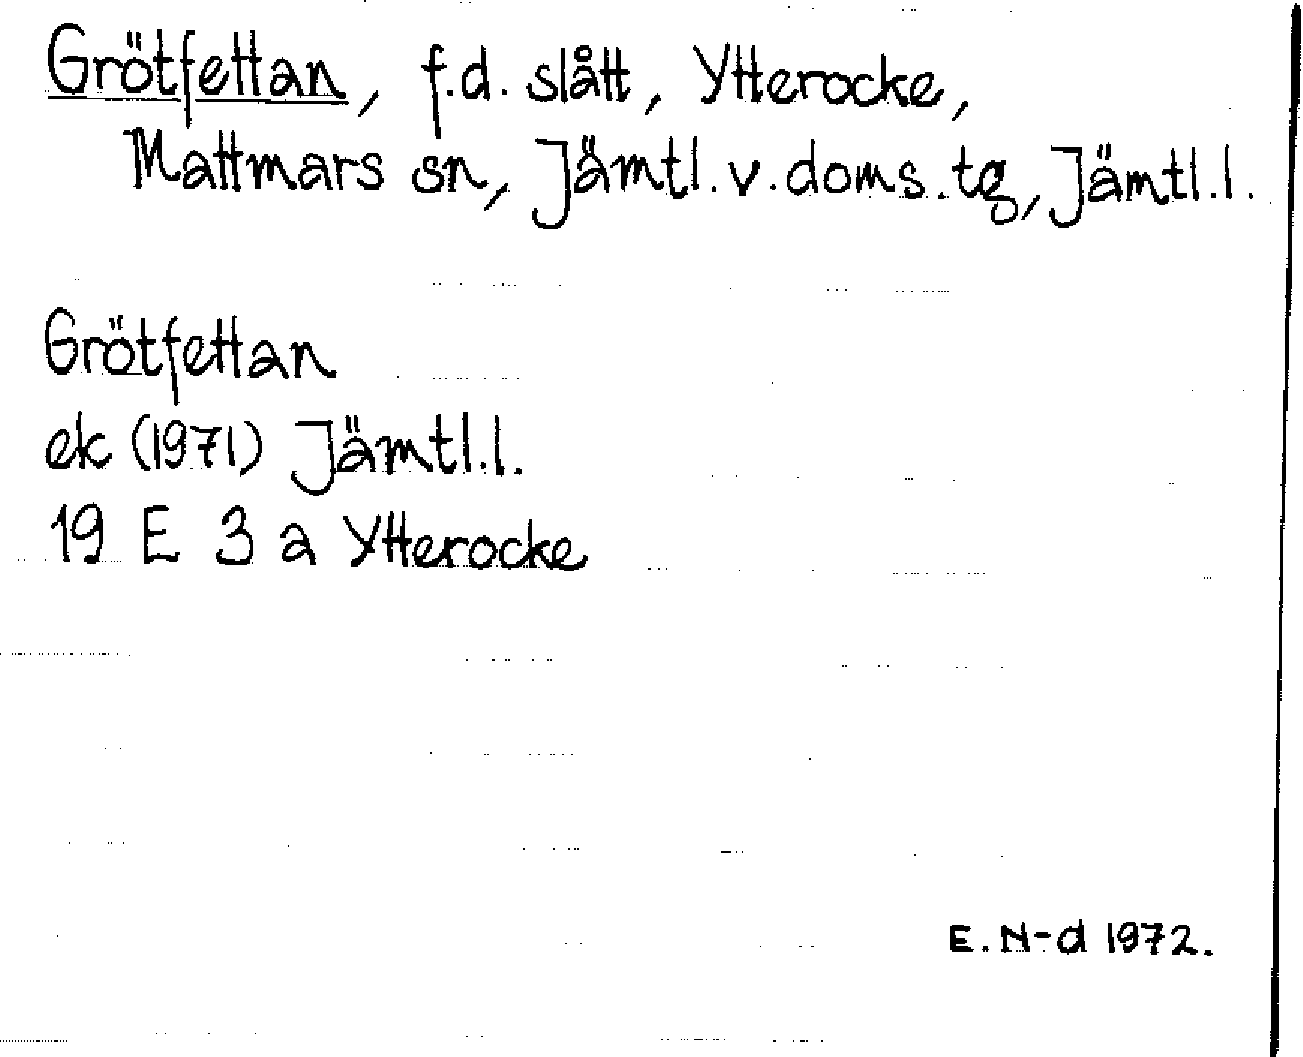 Grötfettan, f.d. slått, Ytterocke,
Mattmars sn, Jämtl.v.doms.tg, Jämtl.l.
Grötfettan
ek (1971) Jämtl.l.
19 E 3 a Ytterocke
E.N-d 1972.